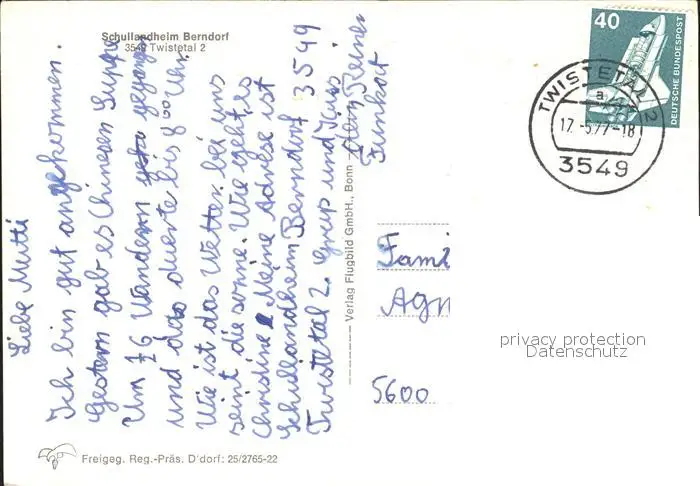 Schullandheim Berndorf
3549 Twistetal 2
Liebe Mutti
Ich bin gut angekommen.
Gestern gab es Chinesen Suppe
Um ½6 Wandern gegangen
und das duerte bis 8⁰⁰ Uhr.
Wie ist das Wetter bei uns
seint die sonne. Wie geht es
Christine Meine Adrese ist
Schullandheim Berndorf 3549
Twistetal 2. Grup und Küss
dein Reiner
Funkort
Verlag Flugbild GmbH., Bonn
40
DEUTSCHE BUNDESPOST
TWISTETAL 2
a
17.-5.77-18
3549
Fami
Agn
5600
privacy protection
Datenschutz
Freigeg. Reg.-Präs. D'dorf: 25/2765-22